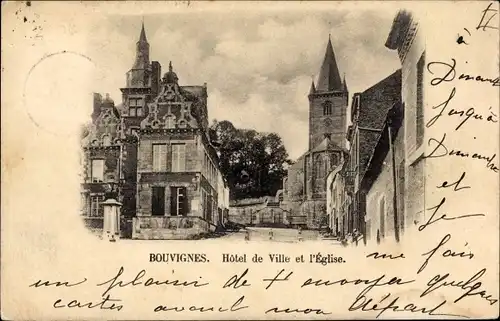 à
Dinant
Jusqu'à
Dimanche
et
Je
me fais
BOUVIGNES. Hôtel de Ville et l'Église.
un plaisir de t'envoyer quelques
cartes avant mon départ